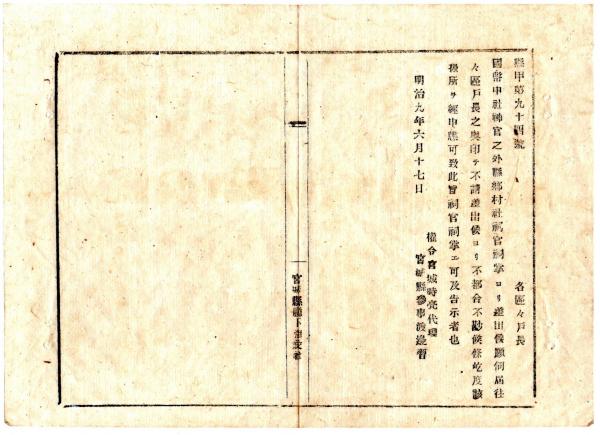 縣甲第九十四號
各區々戸長
國幣中社神官之外縣鄕村社祠官祠掌ヨリ差出候願伺屆往
々區戸長之奥印ヲ不請差出候ヨリ不都合不尠候條屹度該
扱所ヲ經申牒可致此旨祠官祠掌エ可及告示者也
明治九年六月十七日
權令宮城時亮代理
宮城縣參事渡邊
宮城縣